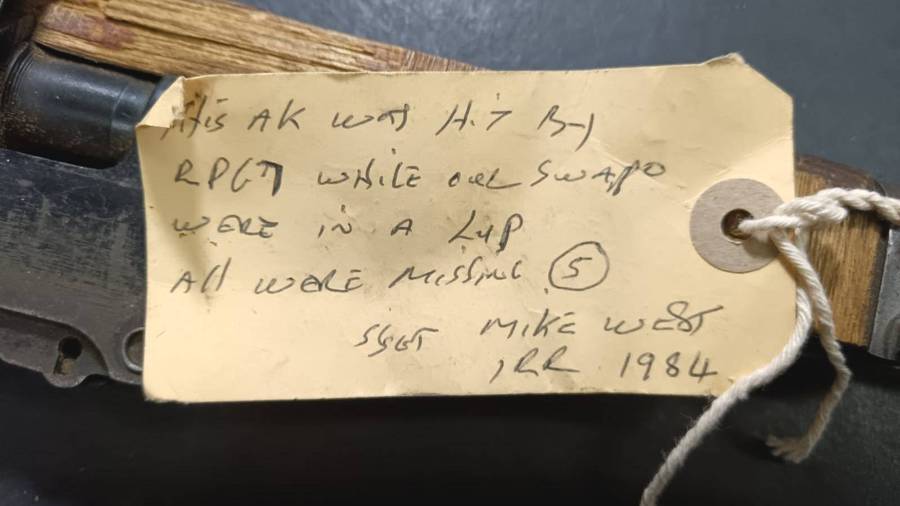 This AK WAS HIT By
RPG7 WHILE OUR SWAPO
WERE IN A LUP
All WERE MISSING (5)
SSGT MIKE WEST
1RR 1984